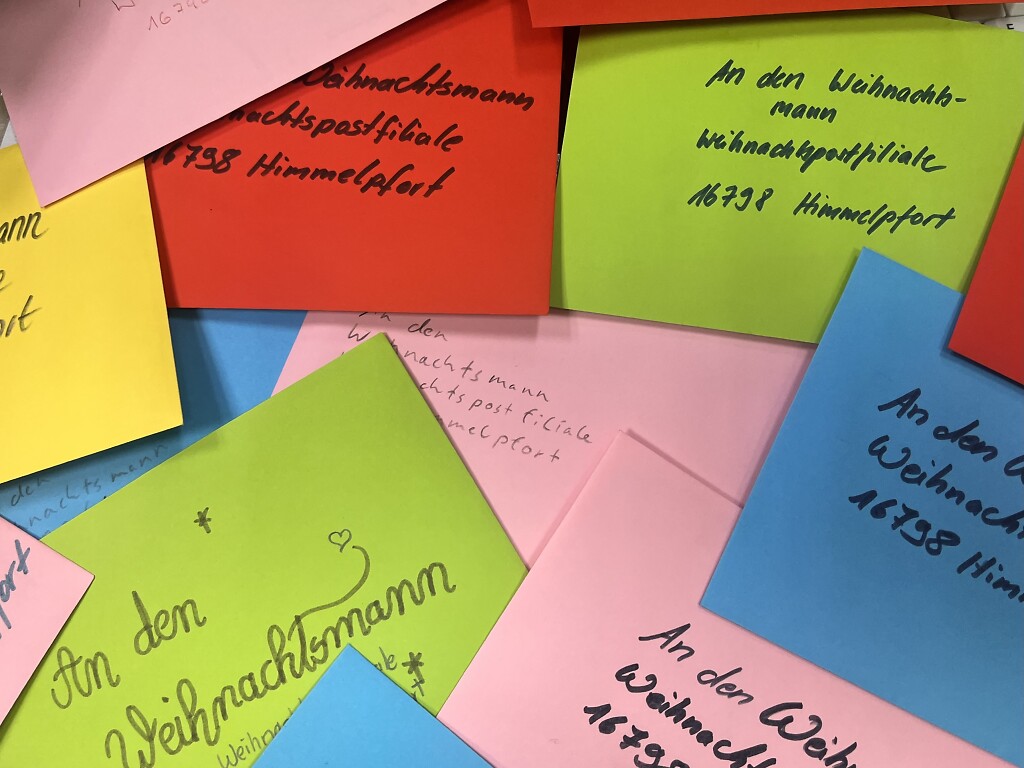 16798
Weihnachtsmann
nachtspostfiliale
16798 Himmelpfort
An den Weihnachts-
mann
Weihnachtspostfiliale
16798 Himmelpfort
ann
e
ort
An den
Weihnachtsmann
chtspostfiliale
mmelpfort
An den
Weihnach
16798 Him
den
nachtsmann
pfort
An den
Weihnachtsmann
Weihnach
ale
An den Weih
Weihnacht
16798